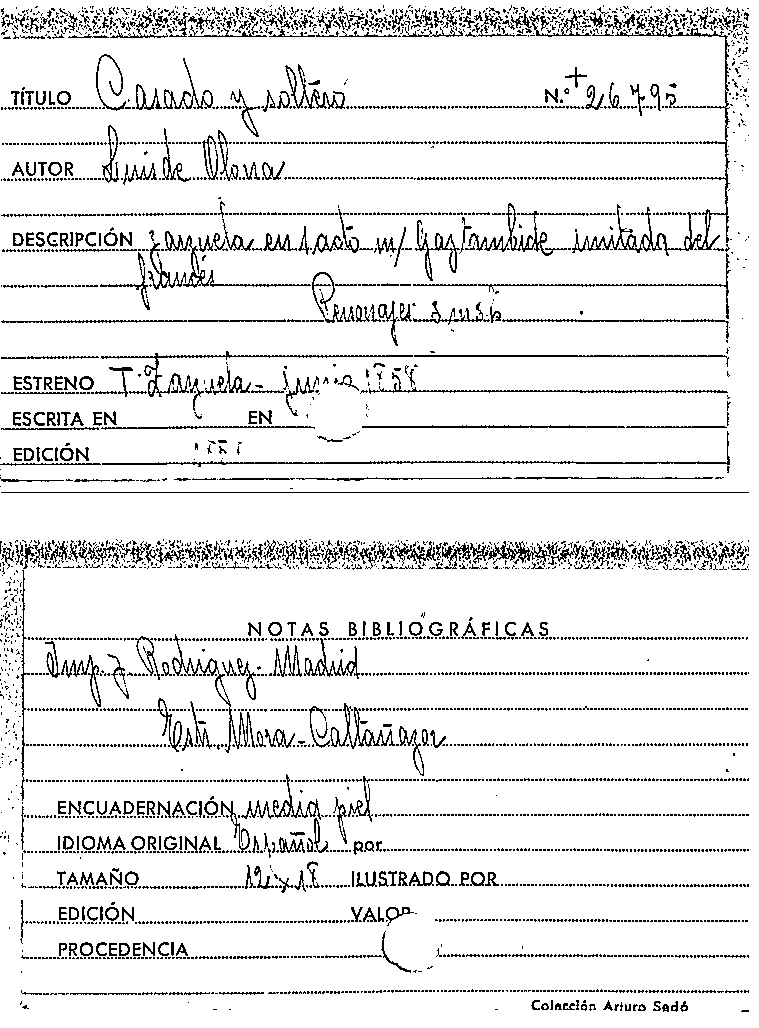 TÍTULO Casado y soltero N.º + 26795
AUTOR Luis de Olona
DESCRIPCIÓN zarzuela en 1 acto m/ Gaztambide imitada del
francés
Personajes 3 m 3 h
ESTRENO T. Zarzuela - junio 1858
ESCRITA EN EN
EDICIÓN
NOTAS BIBLIOGRÁFICAS
Imp. J. Rodriguez - Madrid
Estr. Mora - Caltañazor
ENCUADERNACIÓN media piel
IDIOMA ORIGINAL Español por
TAMAÑO 12 x 18 ILUSTRADO POR
EDICIÓN VALOR
PROCEDENCIA
Colección Arturo Sedó